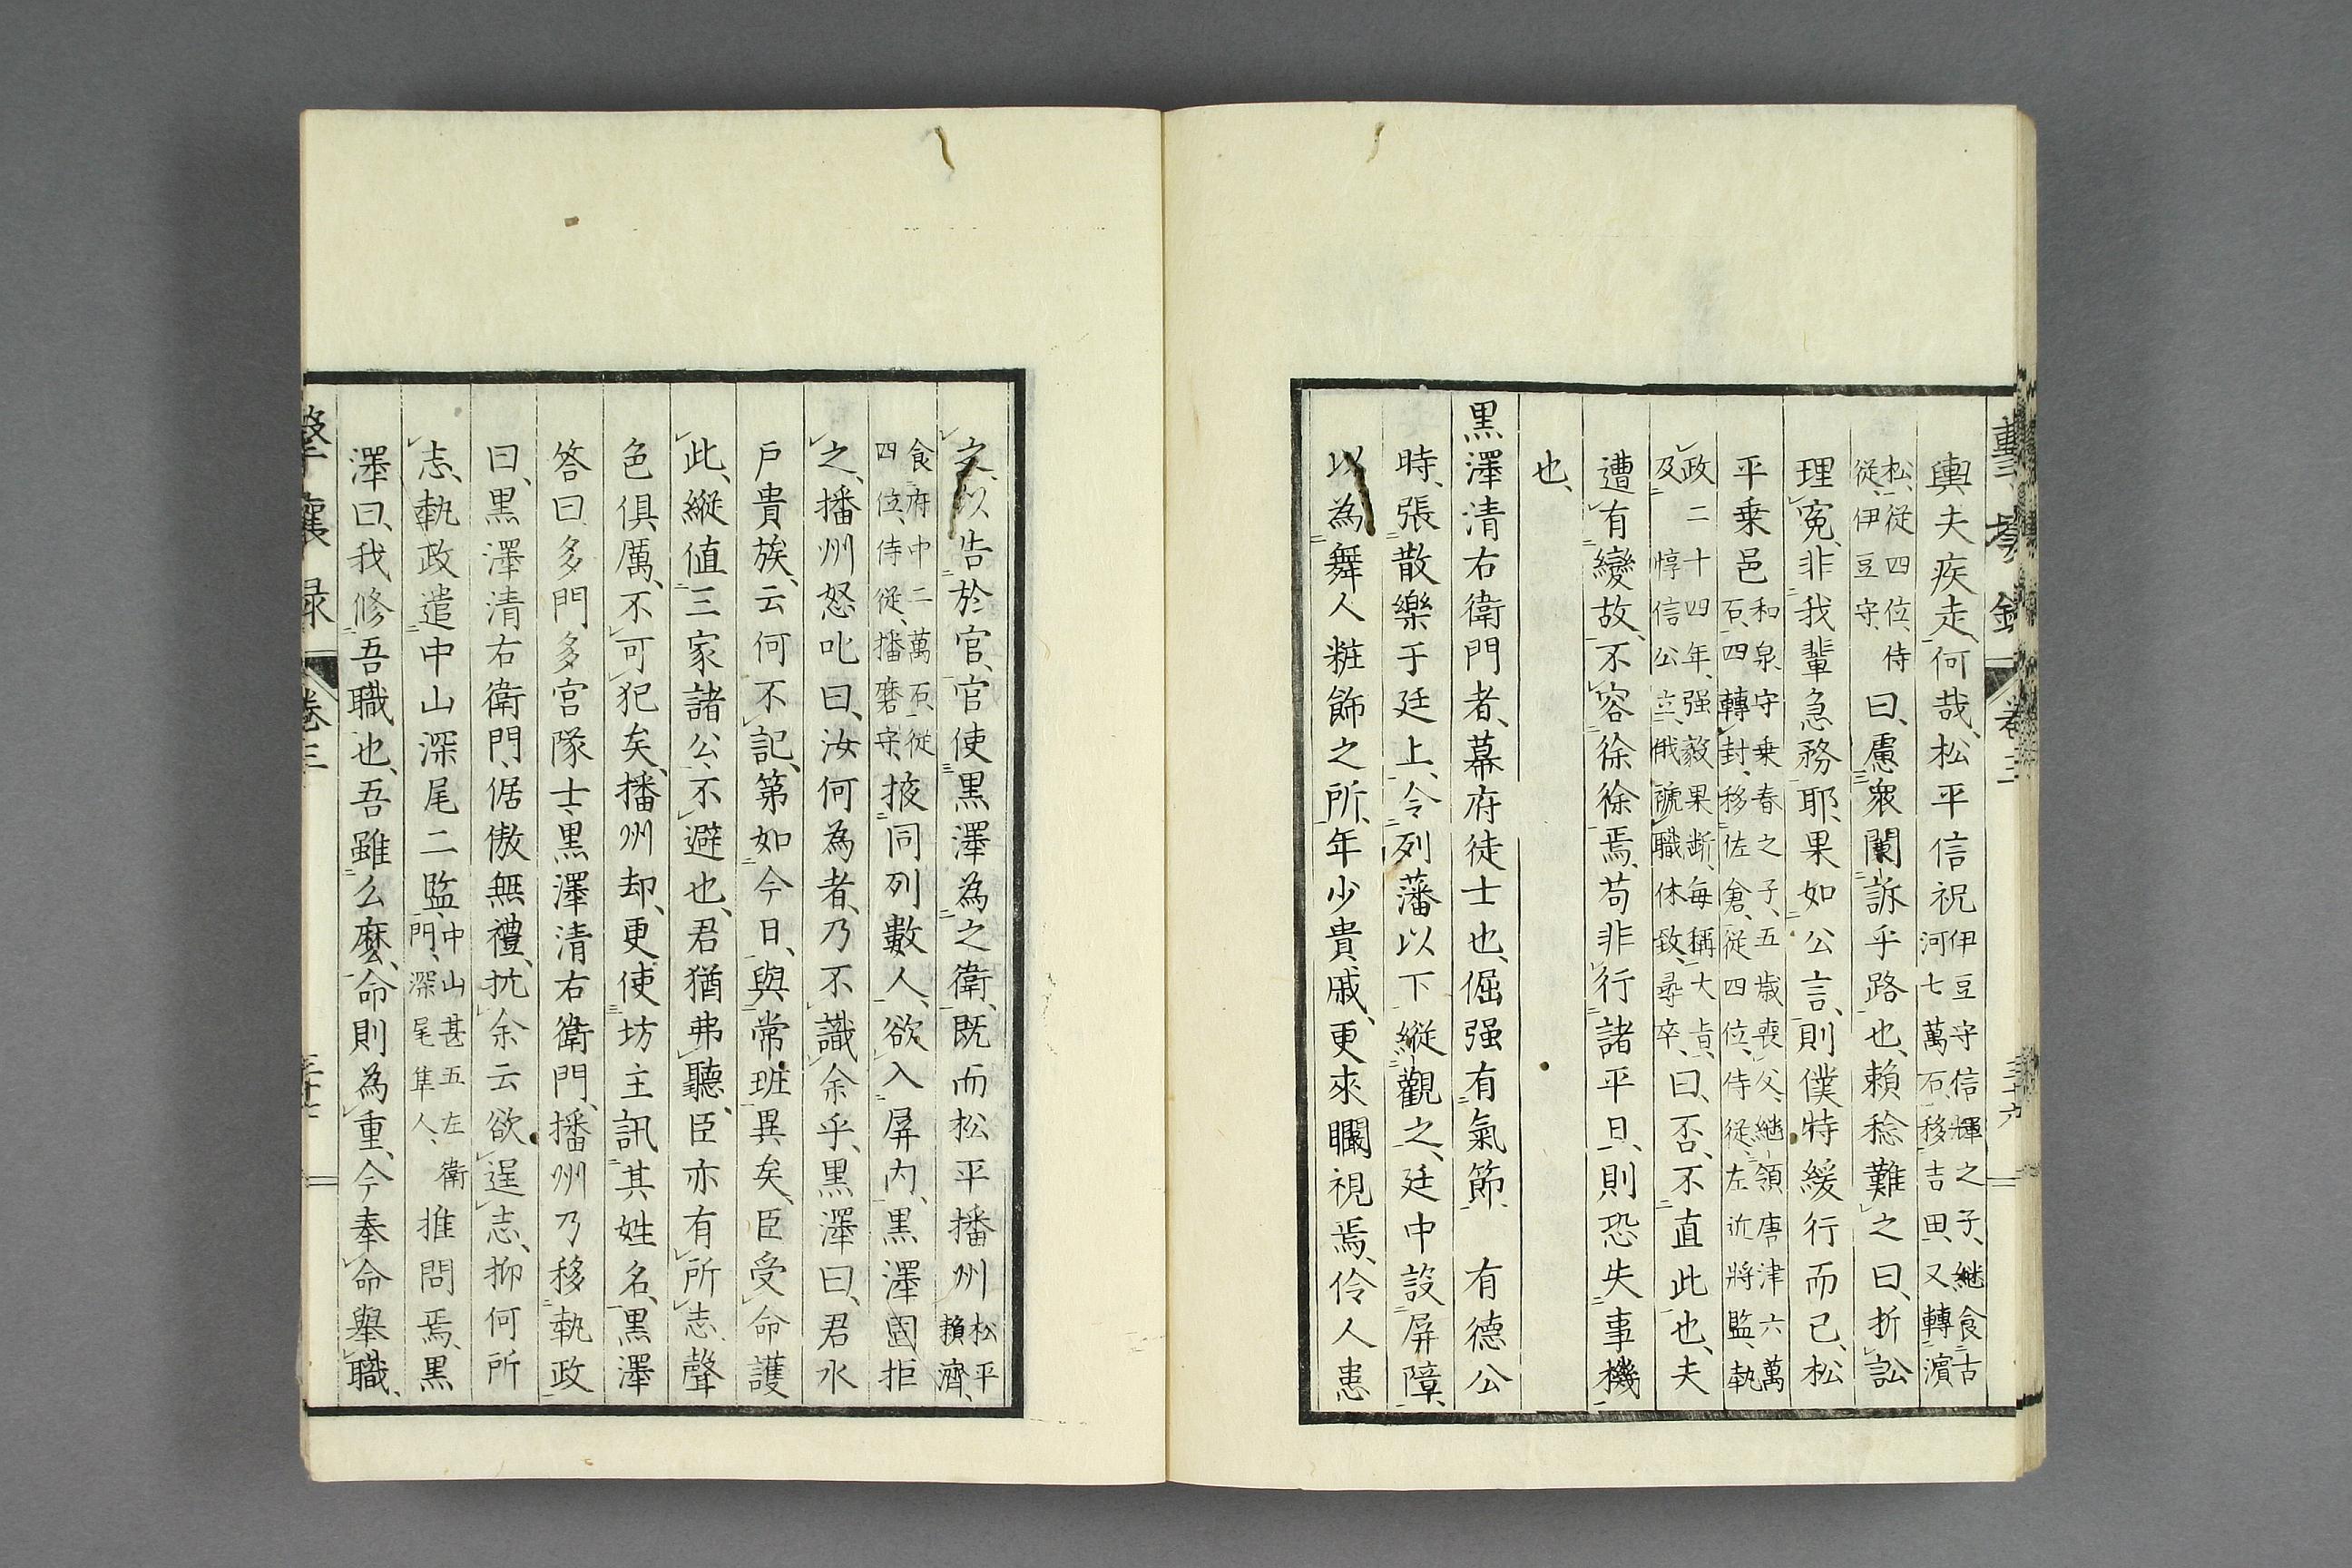 輿夫疾走、何哉、松平信祝伊豆守信輝之子、継食古河七萬石、移吉田、又轉濵
松、從四位、侍從、伊豆守、曰、慮衆闌訴乎路也、賴稔難之曰、折訟
理寃、非我輩急務耶、果如公言、則僕特緩行而已、松
平乗邑和泉守乗春之子、五歳喪父、継領唐津六萬石、四轉封、移佐倉、從四位、侍從、左近將監、執
政二十四年、强毅果断、毎稱大㒵、及惇信公立、俄褫職休致、尋卒、曰、否、不直此也、夫
遭有變故、不容徐徐焉、苟非行諸平日、則恐失事機
也、
黒澤清右衛門者、幕府徒士也、倔强有氣節 有德公
時、張散樂于廷上、令列藩以下縦觀之、廷中設屏障、
以為舞人粧飾之所、年少貴戚、更來矙視焉、伶人患
之、以告於官、官使黒澤為之衛、既而松平播州松平頼濟、
食府中二萬石、從四位、侍從、播磨守、掖同列數人、欲入屏内、黒澤固拒
之、播州怒叱曰、汝何為者、乃不識余乎、黒澤曰、君水
戸貴族、云何不記、第如今日、與常班異矣、臣受命護
此、縦値三家諸公、不避也、君猶弗聽、臣亦有所志、聲
色俱厲、不可犯矣、播州却、更使坊主訊其姓名、黒澤
答曰、多門多宮隊士、黒澤清右衛門、播州乃移執政
曰、黒澤清右衛門、倨傲無禮、抗余云欲逞志、抑何所
志、執政遣中山深尾二監、中山甚五左衛門、深尾隼人、推問焉、黒
澤曰、我修吾職也、吾雖么麼、命則為重、今奉命舉職、
撃壤録 卷三 三十七
卷三 三十六